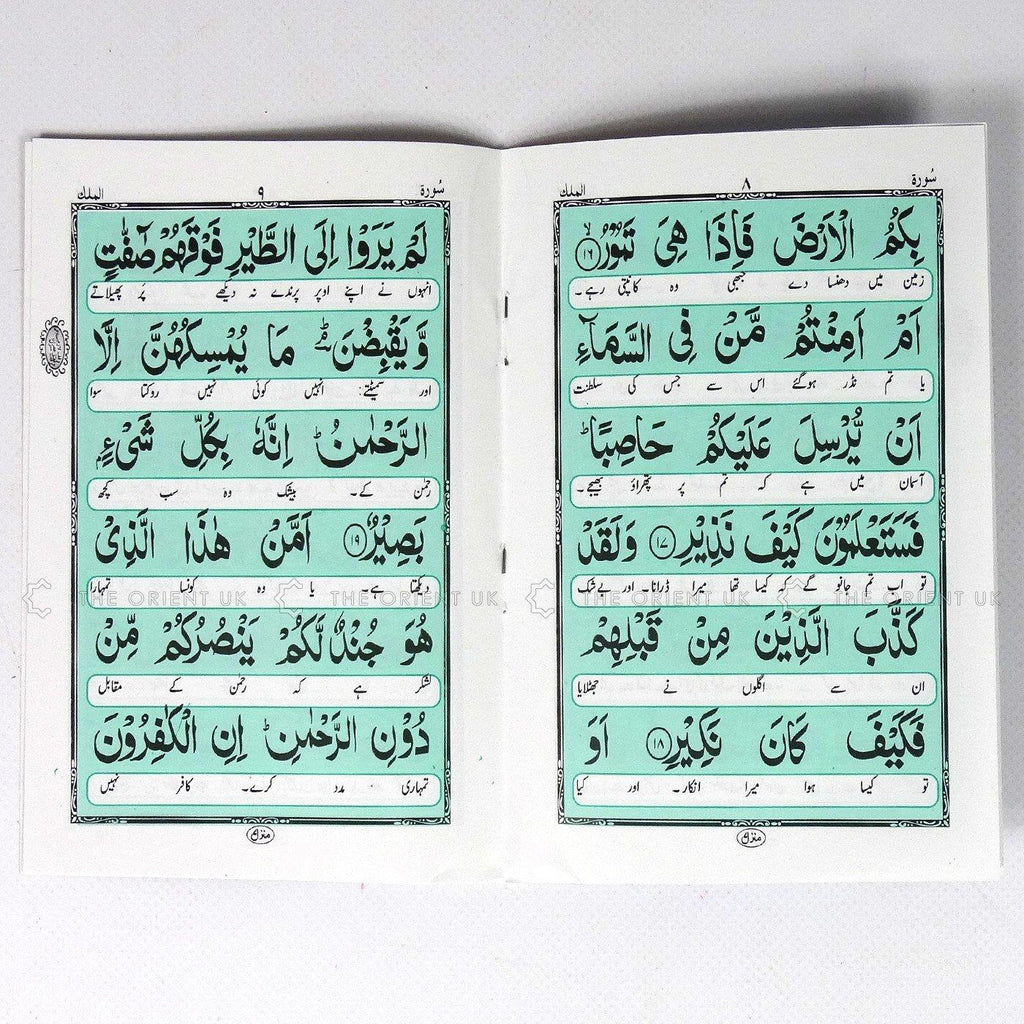 سُورة ٨ الملك
بِكُمُ الْاَرْضَ فَاِذَا هِیَ تَمُوْرُ ۙ۱۶
زمین میں دھنسا دے جبھی وہ کانپتی رہے۔
اَمْ اَمِنْتُمْ مَّنْ فِی السَّمَآءِ
یا تم نڈر ہوگئے اس سے جس کی سلطنت
اَنْ یُّرْسِلَ عَلَیْكُمْ حَاصِبًا ؕ
آسمان میں ہے کہ تم پر پتھراؤ بھیجے۔
فَسَتَعْلَمُوْنَ كَیْفَ نَذِیْرِ ۱۷ وَلَقَدْ
تو اب تم جانو گے کہ کیسا تھا میرا ڈرانا۔ اور بےشک
كَذَّبَ الَّذِیْنَ مِنْ قَبْلِهِمْ
ان سے اگلوں نے جھٹلایا
فَكَیْفَ كَانَ نَكِیْرِ ۱۸ اَوَ
تو کیسا ہوا میرا انکار۔ اور کیا
منزل
سُورة ٩ الملك
لَمْ یَرَوْا اِلَی الطَّیْرِ فَوْقَهُمْ صٰٓفّٰتٍ
انہوں نے اپنے اوپر پرندے نہ دیکھے پَر پھیلاتے
وَّیَقْبِضْنَ ؔۘ مَا یُمْسِكُهُنَّ اِلَّا
اور سمیٹتے: انہیں کوئی نہیں روکتا سوا
الرَّحْمٰنُ ؕ اِنَّهٗ بِكُلِّ شَیْءٍۭ
رحمٰن کے۔ بیشک وہ سب کچھ
بَصِیْرٌ ۱۹ اَمَّنْ هٰذَا الَّذِیْ
دیکھتا ہے۔ یا وہ کونسا تمہارا
هُوَ جُنْدٌ لَّكُمْ یَنْصُرُكُمْ مِّنْ
لشکر ہے کہ رحمٰن کے مقابل
دُوْنِ الرَّحْمٰنِ ؕ اِنِ الْكٰفِرُوْنَ
تمہاری مدد کرے۔ کافر نہیں
منزل
THE ORIENT UK THE ORIENT UK THE ORIENT UK THE ORIENT UK